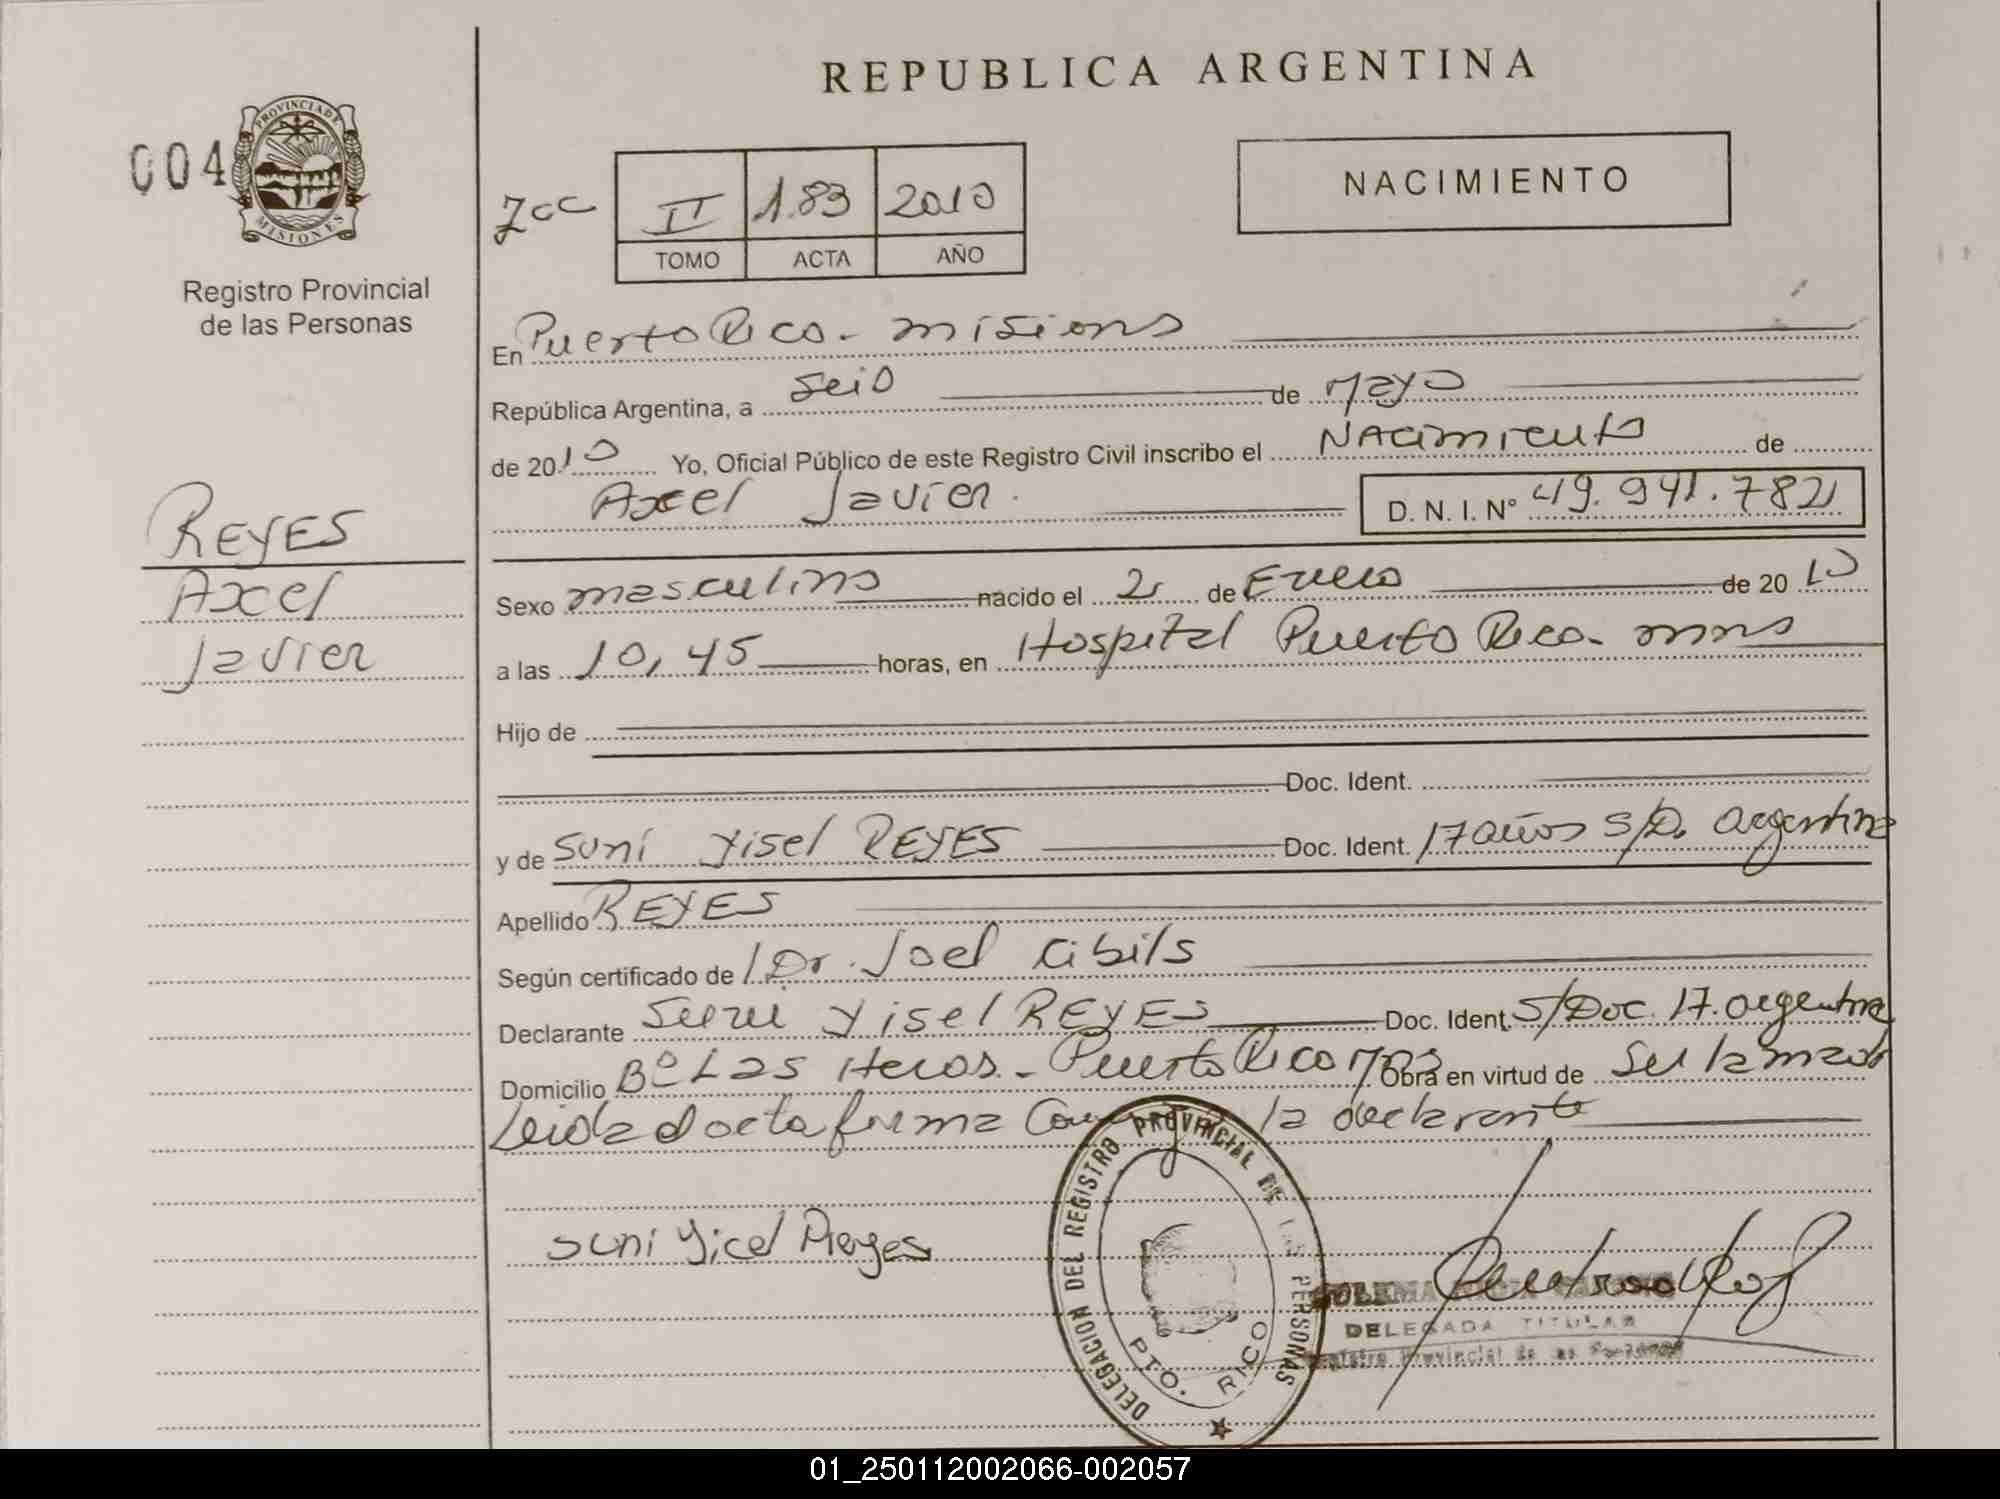 REPUBLICA ARGENTINA
004
PROVINCIA DE MISIONES
Registro Provincial
de las Personas
NACIMIENTO
II 183 2010
TOMO ACTA AÑO
En Puerto Rico - misiones
República Argentina, a seis de Mayo
de 2010 Yo, Oficial Público de este Registro Civil inscribo el Nacimiento de
Axel Javier. D. N. I. Nº 49.941.782
REYES
Axel
Javier
Sexo masculino nacido el 21 de Enero de 2010
a las 10,45 horas, en Hospital Puerto Rico - mnes
Hijo de
Doc. Ident.
y de Suni Yisel REYES Doc. Ident. 17 años S/D. argentina
Apellido REYES
Según certificado de Dr. Joel Cibils
Declarante Suni Yisel REYES Doc. Ident. S/Doc. 17. argentina
Domicilio Bº Las Heras - Puerto Rico Obra en virtud de ser la madre
Leida el acta firma la declarante
suni yicel Reyes
DELEGACION DEL REGISTRO PROVINCIAL DE LAS PERSONAS
PTO. RICO
DELEGADA TITULAR
Registro Provincial de las Personas
01_250112002066-002057